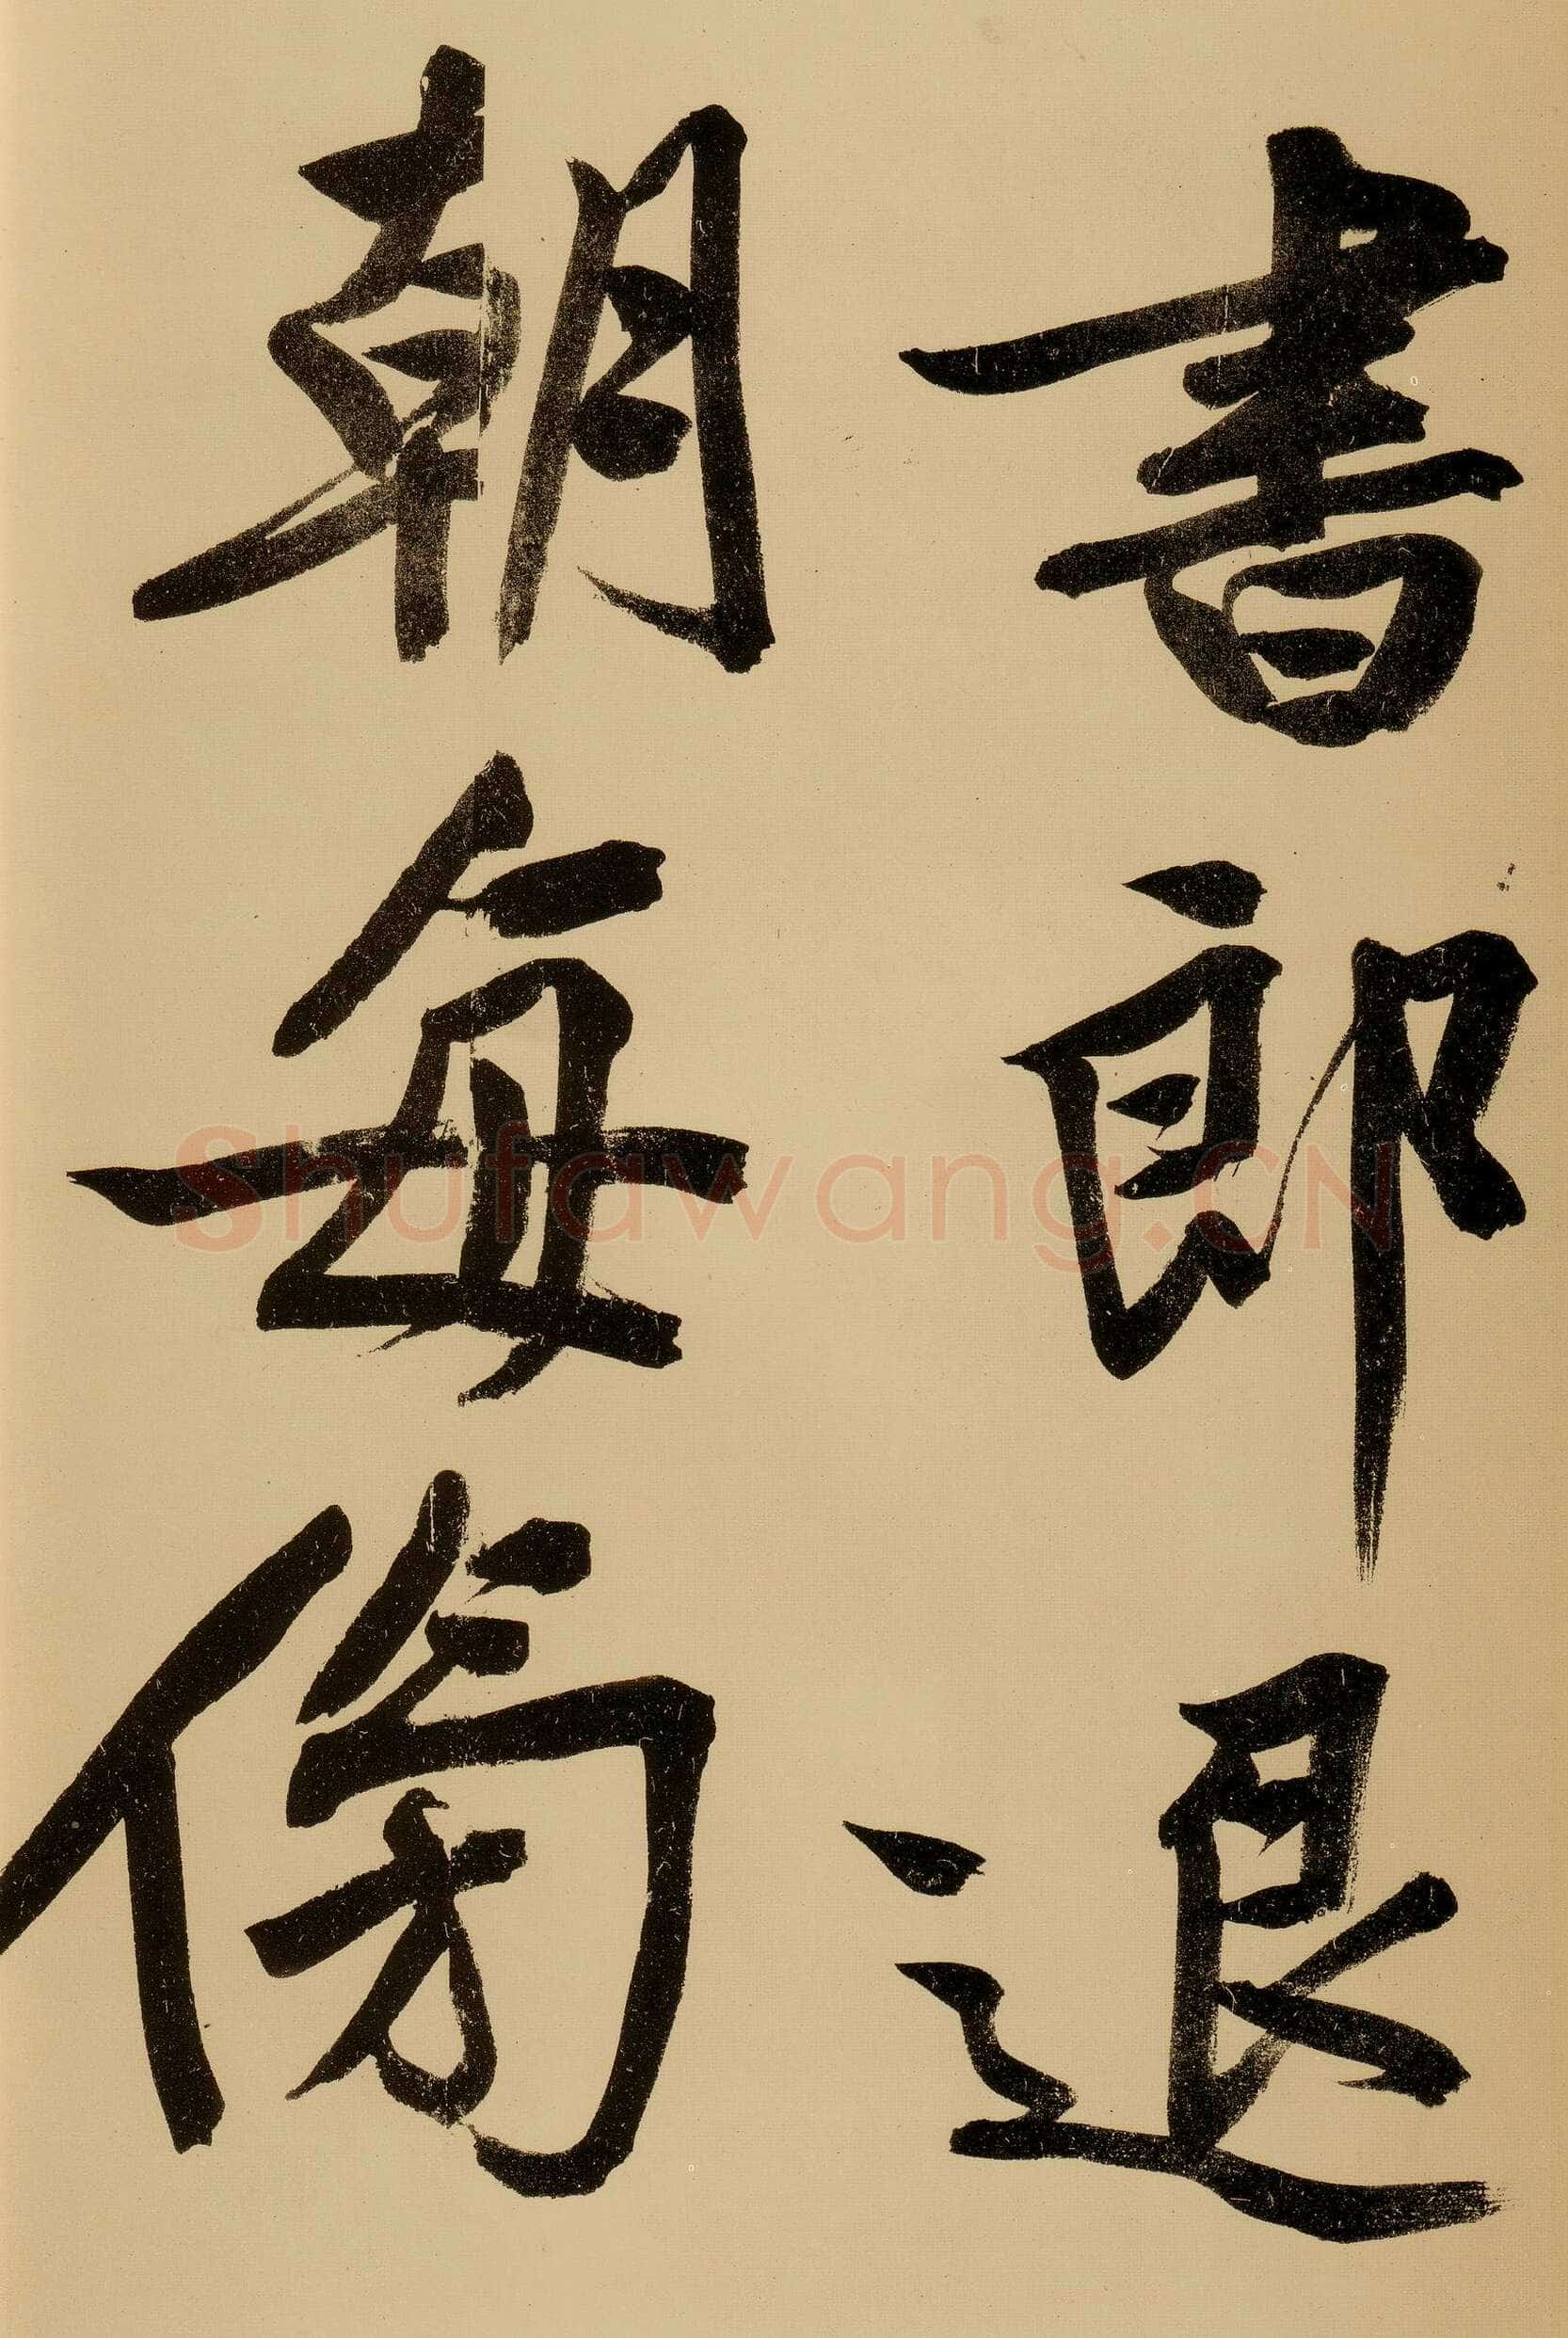 書郎退
朝每傍
Shufawang.CN